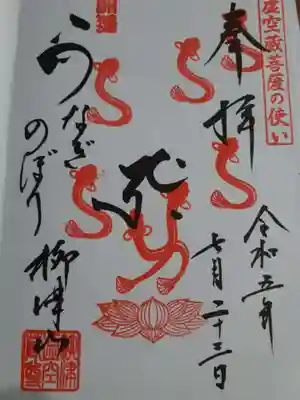 虚空蔵菩薩の使い
奉拝
令和五年
七月二十三日
うなぎ
のぼり
柳津山